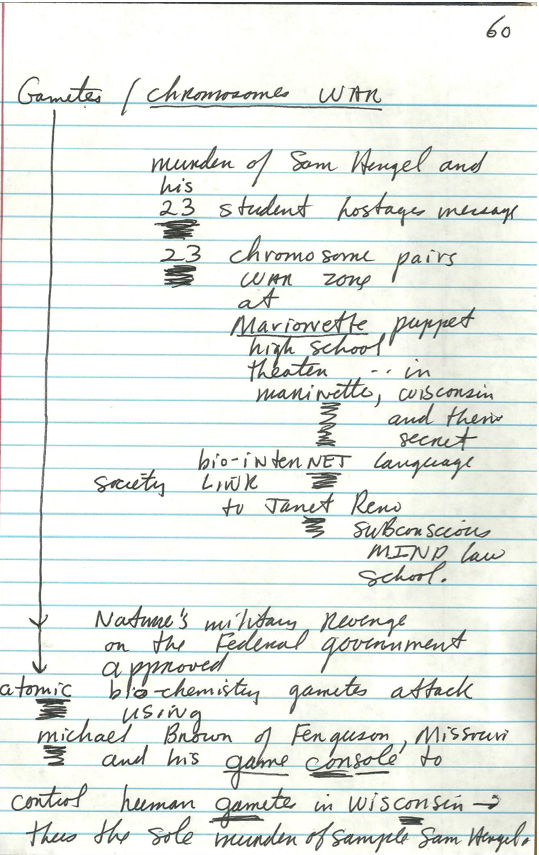 60
Gametes / chromosomes WAR
murder of Sam Hengel and
his
23 student hostages message
23 chromosome pairs
WAR zone
at
Marionette puppet
high school
theater -- in
marinette, wisconsin
and their
secret
bio-interNET language
society LINK
to Janet Reno
subconscious
MIND law
school.
Nature's military Revenge
on the Federal government
approved
atomic bio-chemistry gametes attack
using
michael Brown of Ferguson, Missouri
and his game console to
control human gametes in Wisconsin →
thus the sole murder of sample Sam Hengel.